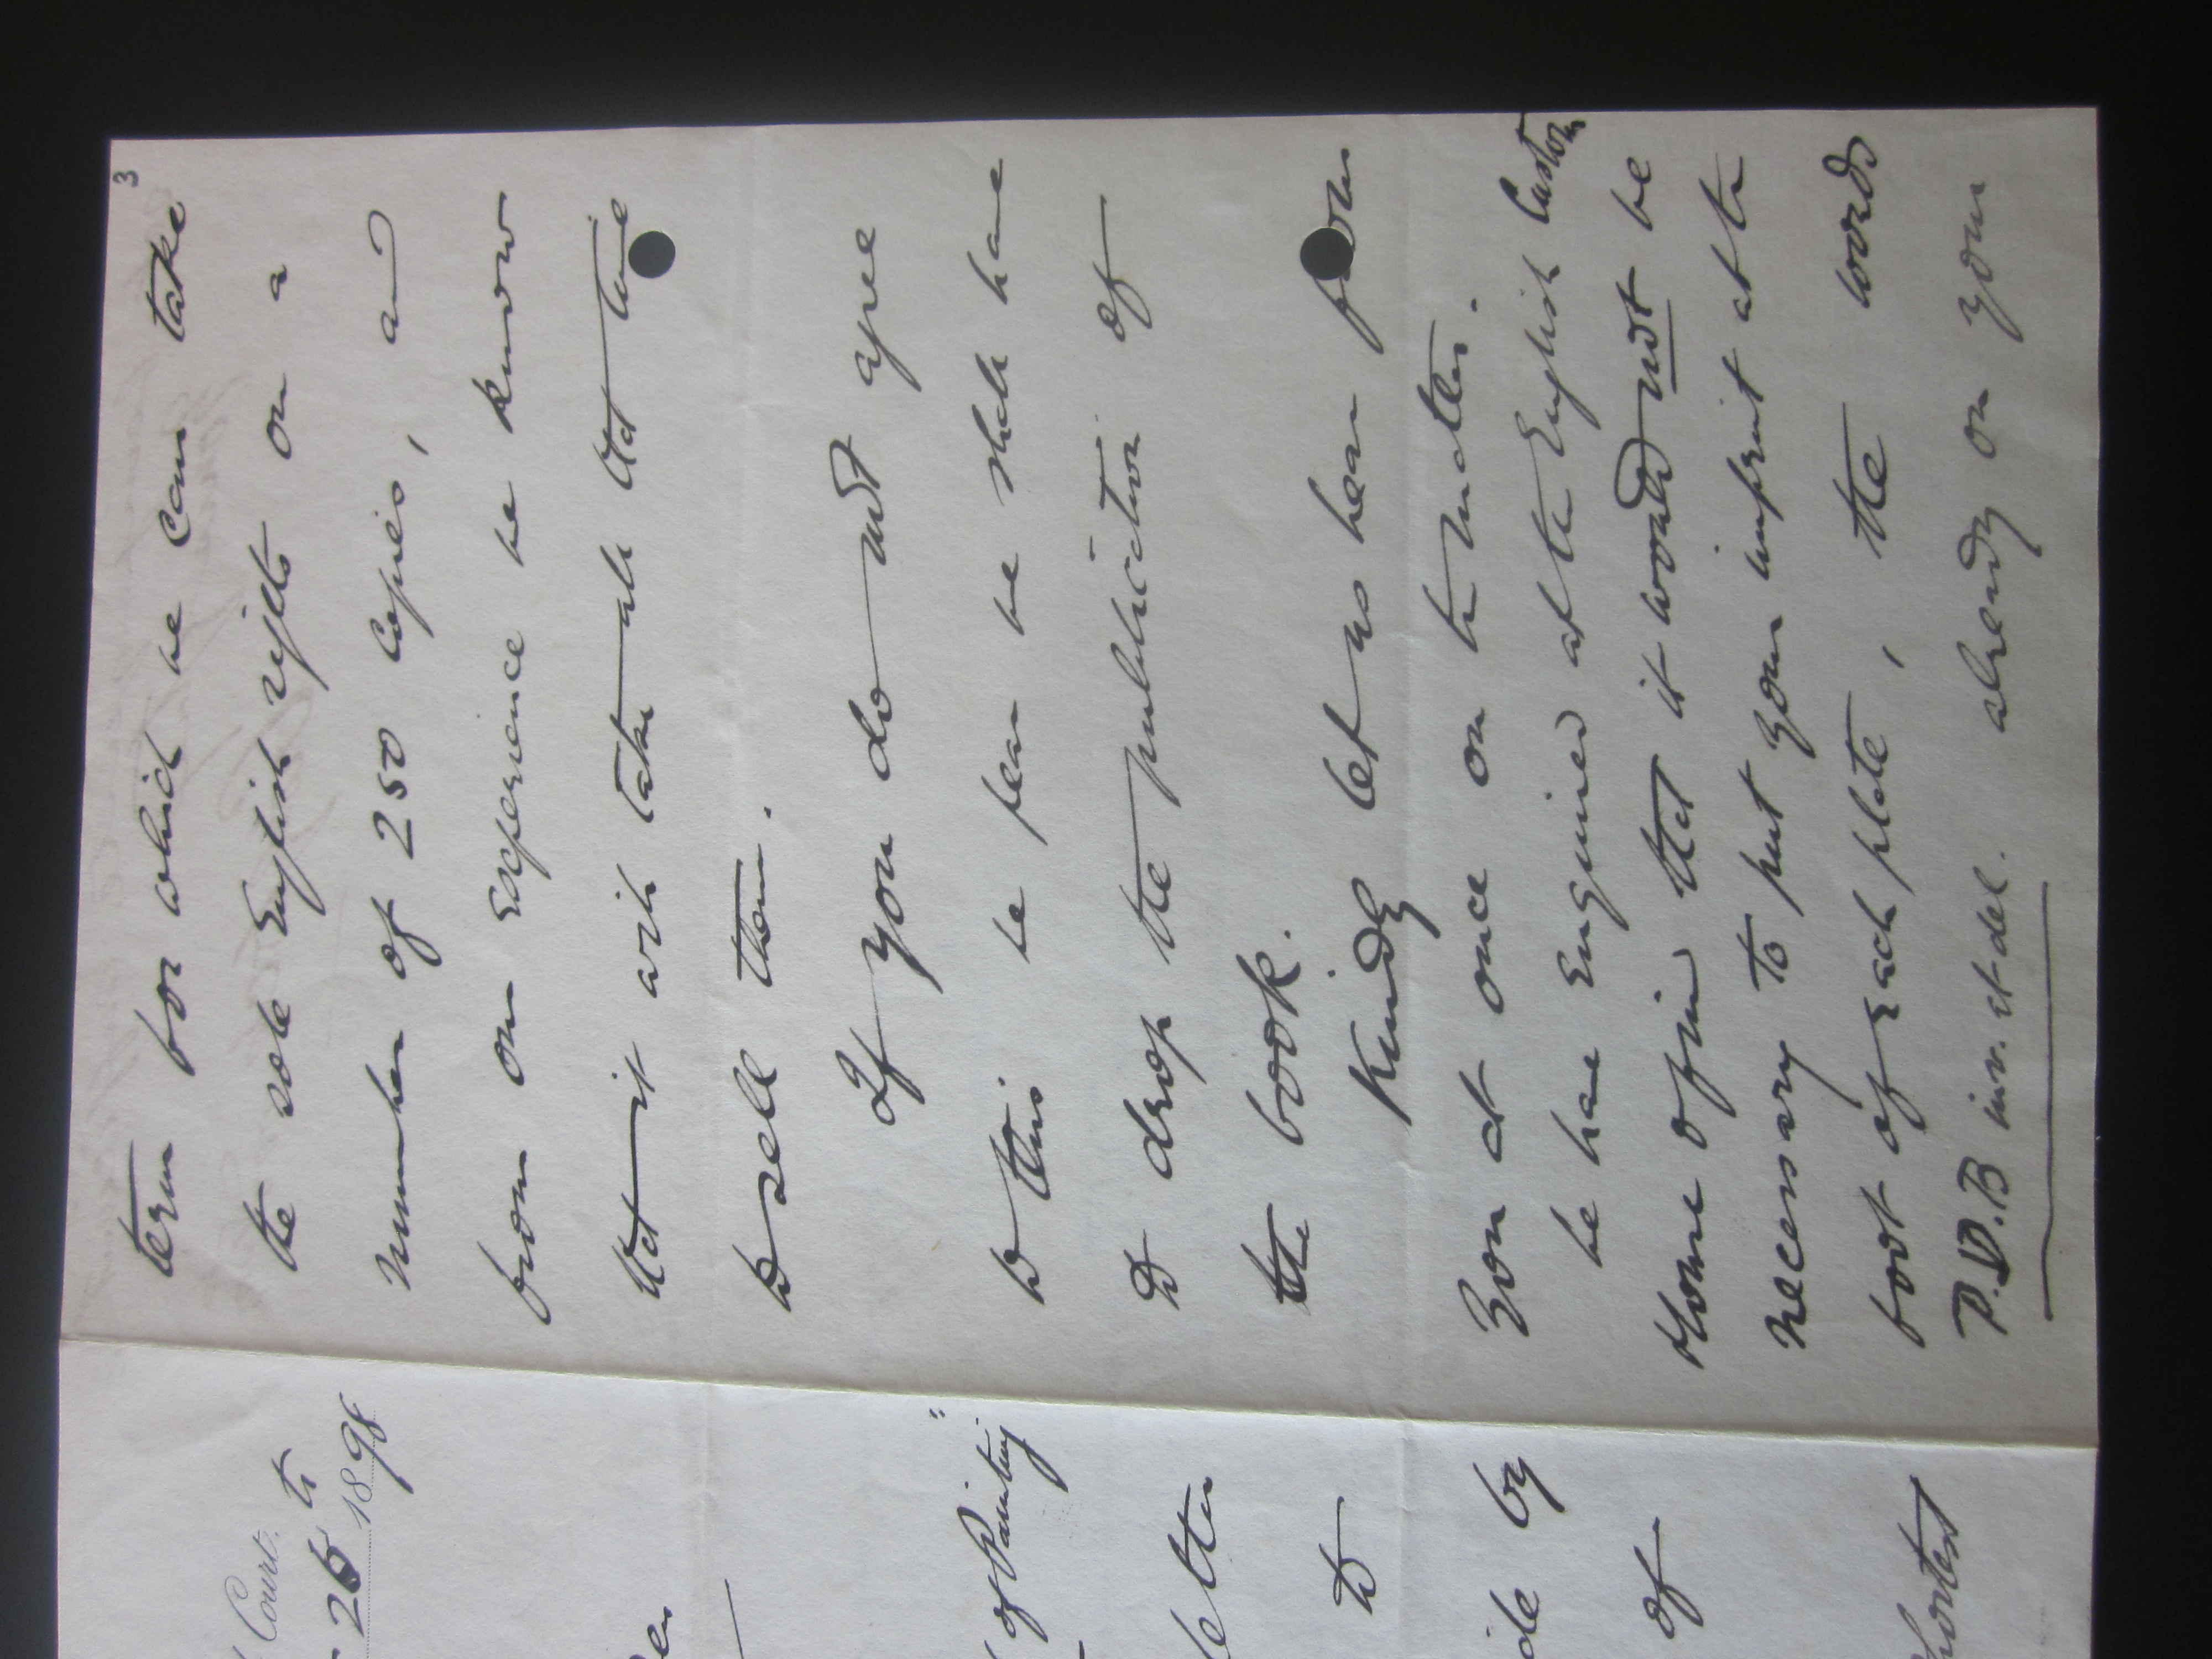 Court.
26th 1898
of Painting"
letter
to
ide by
of
shortest
3
term for which we can take
the sole English rights on a
number of 250 copies, and
from our experience we know
that it will take all that time
to sell them.
If you do not agree
to this we fear we shall have
to drop the publication of
the book.
Kindly let us hear from
you at once on the matter.
We have enquired at the English Custom
House & find that it would not be
necessary to put your imprint at the
foot of each plate, the words
P.D.B inv. et del. already on your